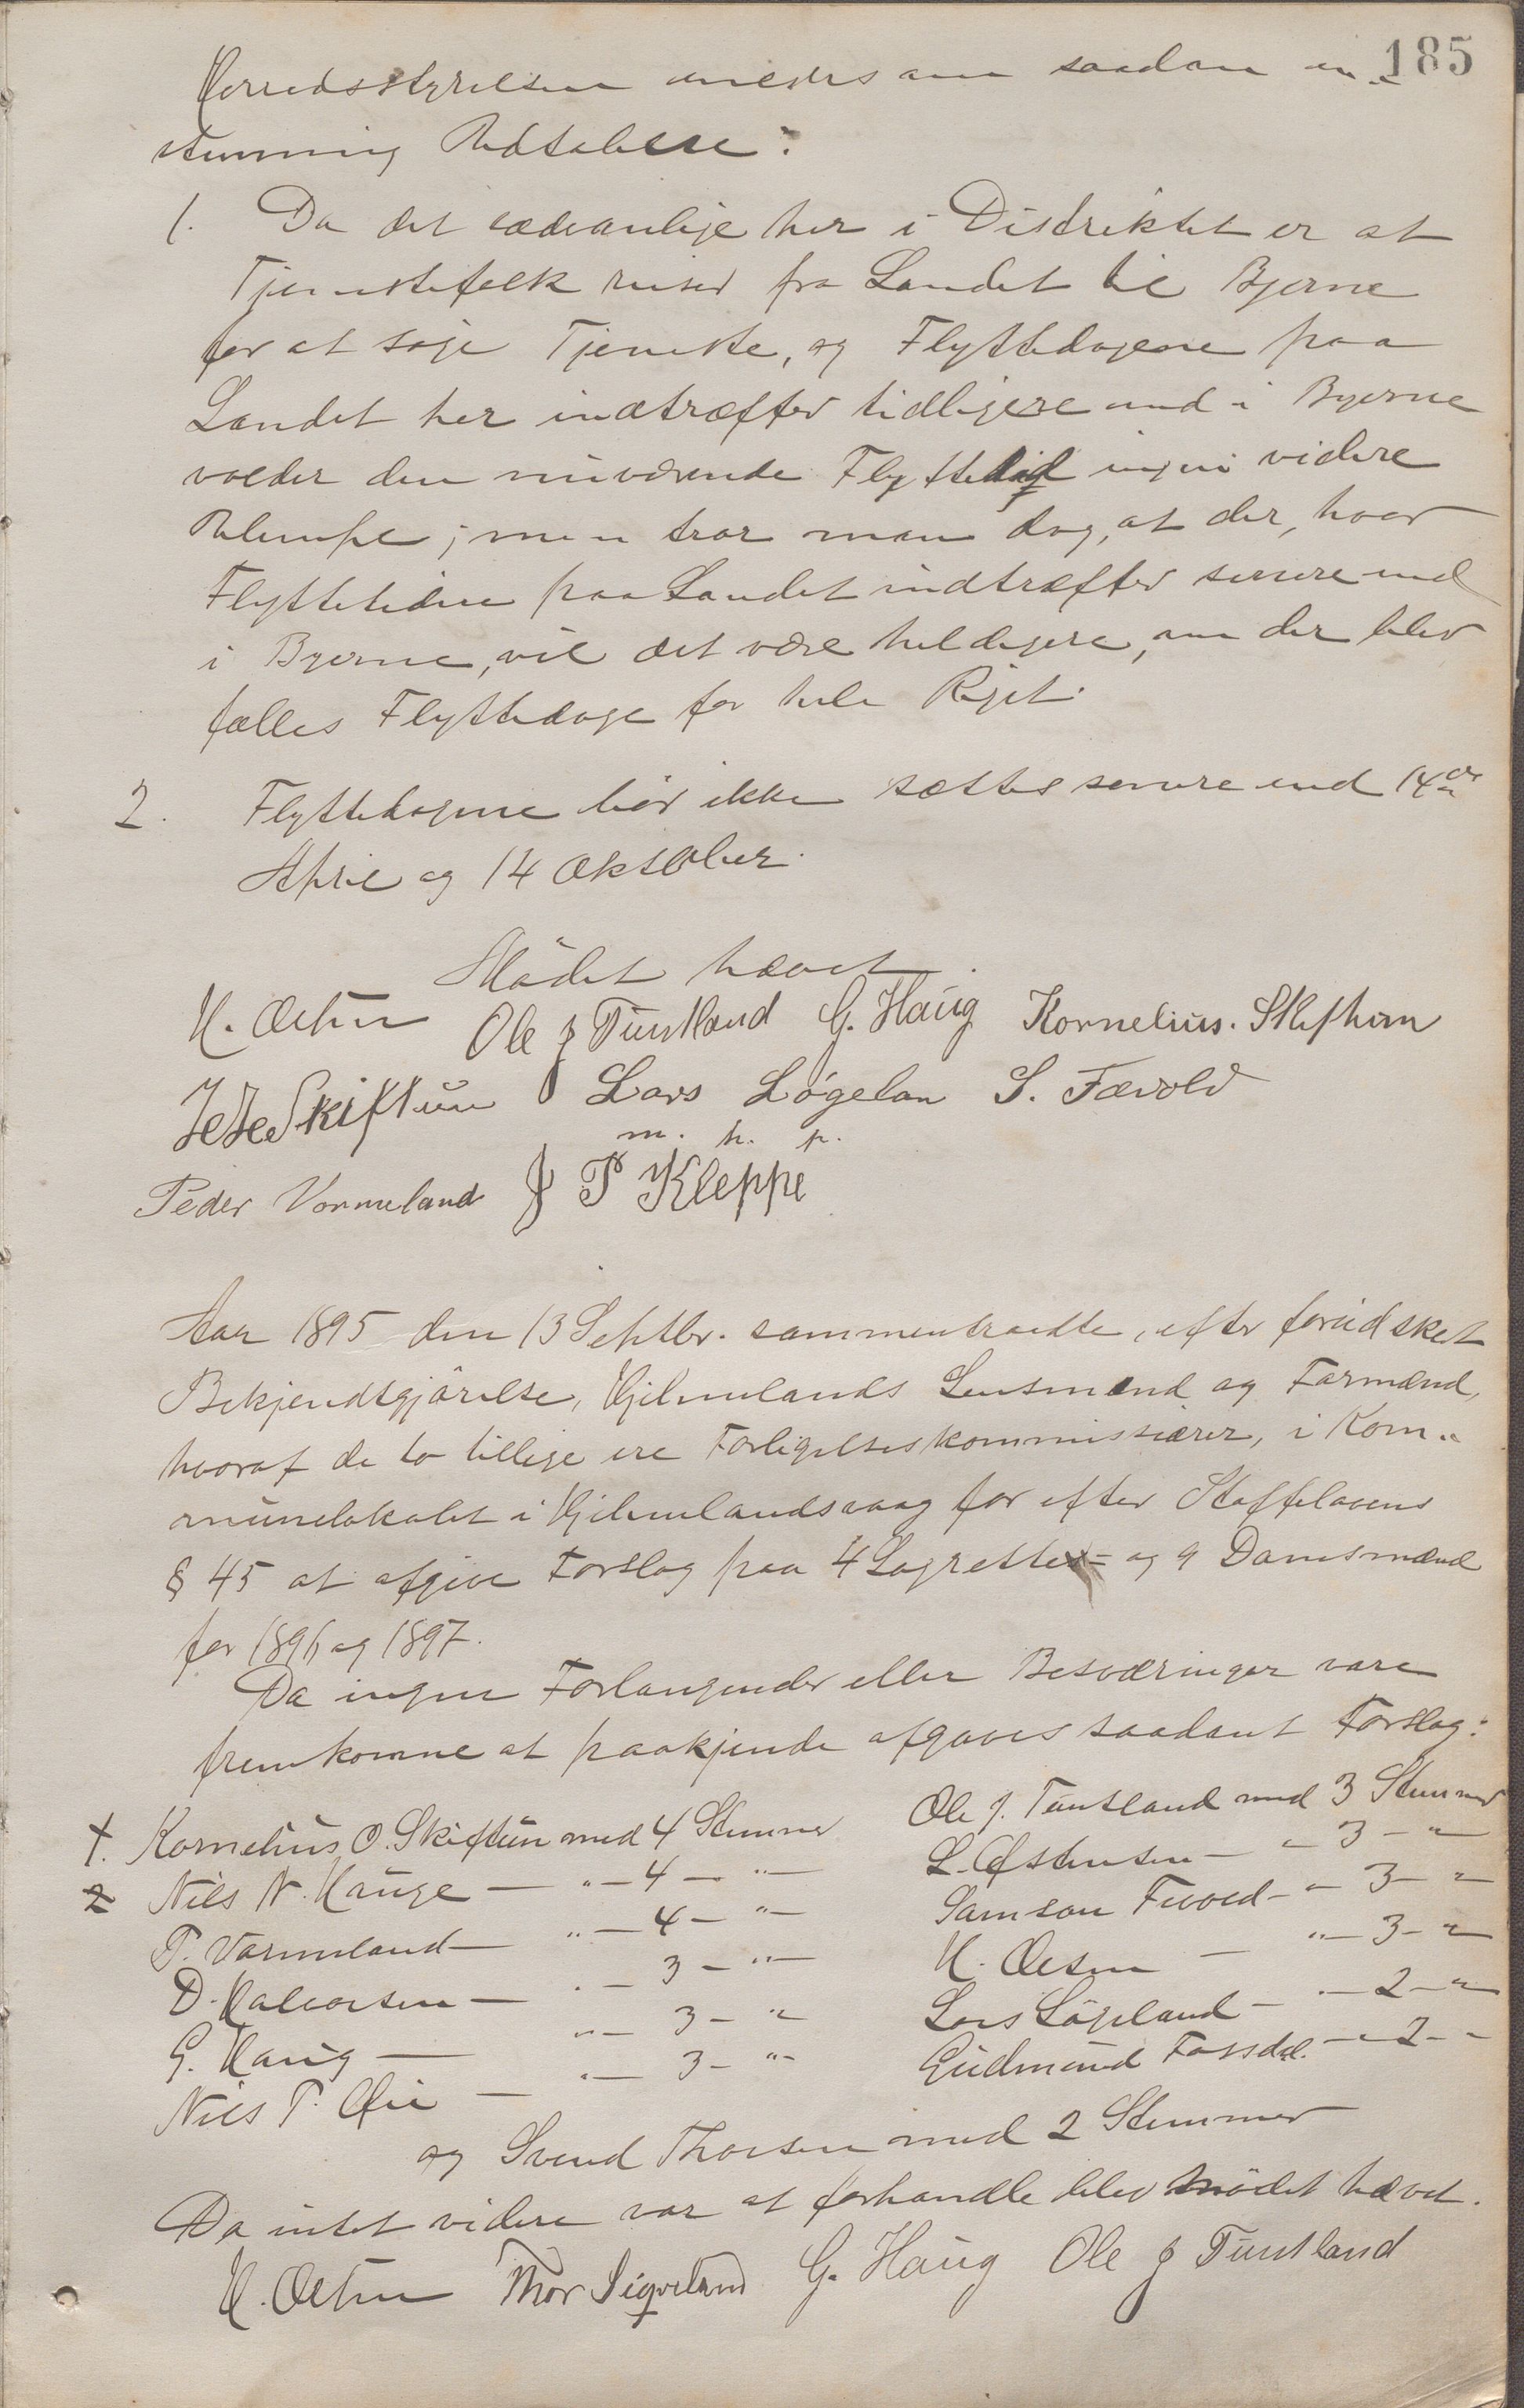 185
Herredsstyrelsen enedes om saadan en-
stemmig Udtalelse:
1. Da det sædvanlige her i Distriktet er at
Tjenestefolk reiser fra Landet til Byerne
for at søge Tjeneste, og Flyttedagene paa
Landet her indtræffer tidligere end i Byerne
volder den nuværende Flyttedag ingen videre
Ulempe; men tror man dog, at der, hvor
Flyttetiden paa Landet indtræffer senere end
i Byerne, vil det være heldigere, om der blev
fælles Flyttedage for hele Riget.
2. Flyttedagene bør ikke sættes senere end 14de
April og 14 Oktober.
Mødet hævet.
H. Oelsen Ole J Tuntland G. Haug Kornelius. Skiftun
Skiftun Lars Løgelan S. Fævold
m. h. p.
Peder Vormeland J P Kleppe
Aar 1895 den 13 Septbr. sammentraadte, efter forud skeet
Bekjendtgjørelse, Hjelmelands Lensmand og Formænd,
hvoraf de to tillige ere Forligelseskommissærer, i Kom-
munelokalet i Hjelmelandsvaag for efter Staffelovens
§ 45 at afgive Forslag paa 4 Lagrette- og 9 Domsmænd
for 1896 og 1897.
Da ingen Forlangender eller Besværinger vare
fremkomne at paakjende afgaves saadant Forslag:
1. Kornelius O. Skiftun med 4 Stemmer
2 Nils N. Hauge — " — 4 — " —
P. Vormeland — " — 4 — " —
D. Halvorsen — " — 3 — " —
G. Haug — " — 3 — "
Nils P. Øie — " — 3 — " —
Ole J. Tuntland med 3 Stemmer
L. Østensen — " 3 — " —
Samson Fævold — " 3 — "
H. Oelsen — " — 3 — "
Lars Løgeland — " — 2 — "
Gudmund Fossdal. — " 2 — "
og Svend Thorsen med 2 Stemmer
Da intet videre var at forhandle blev mødet hævet.
H. Oelsen Thor Sigveland G. Haug Ole J Tuntland